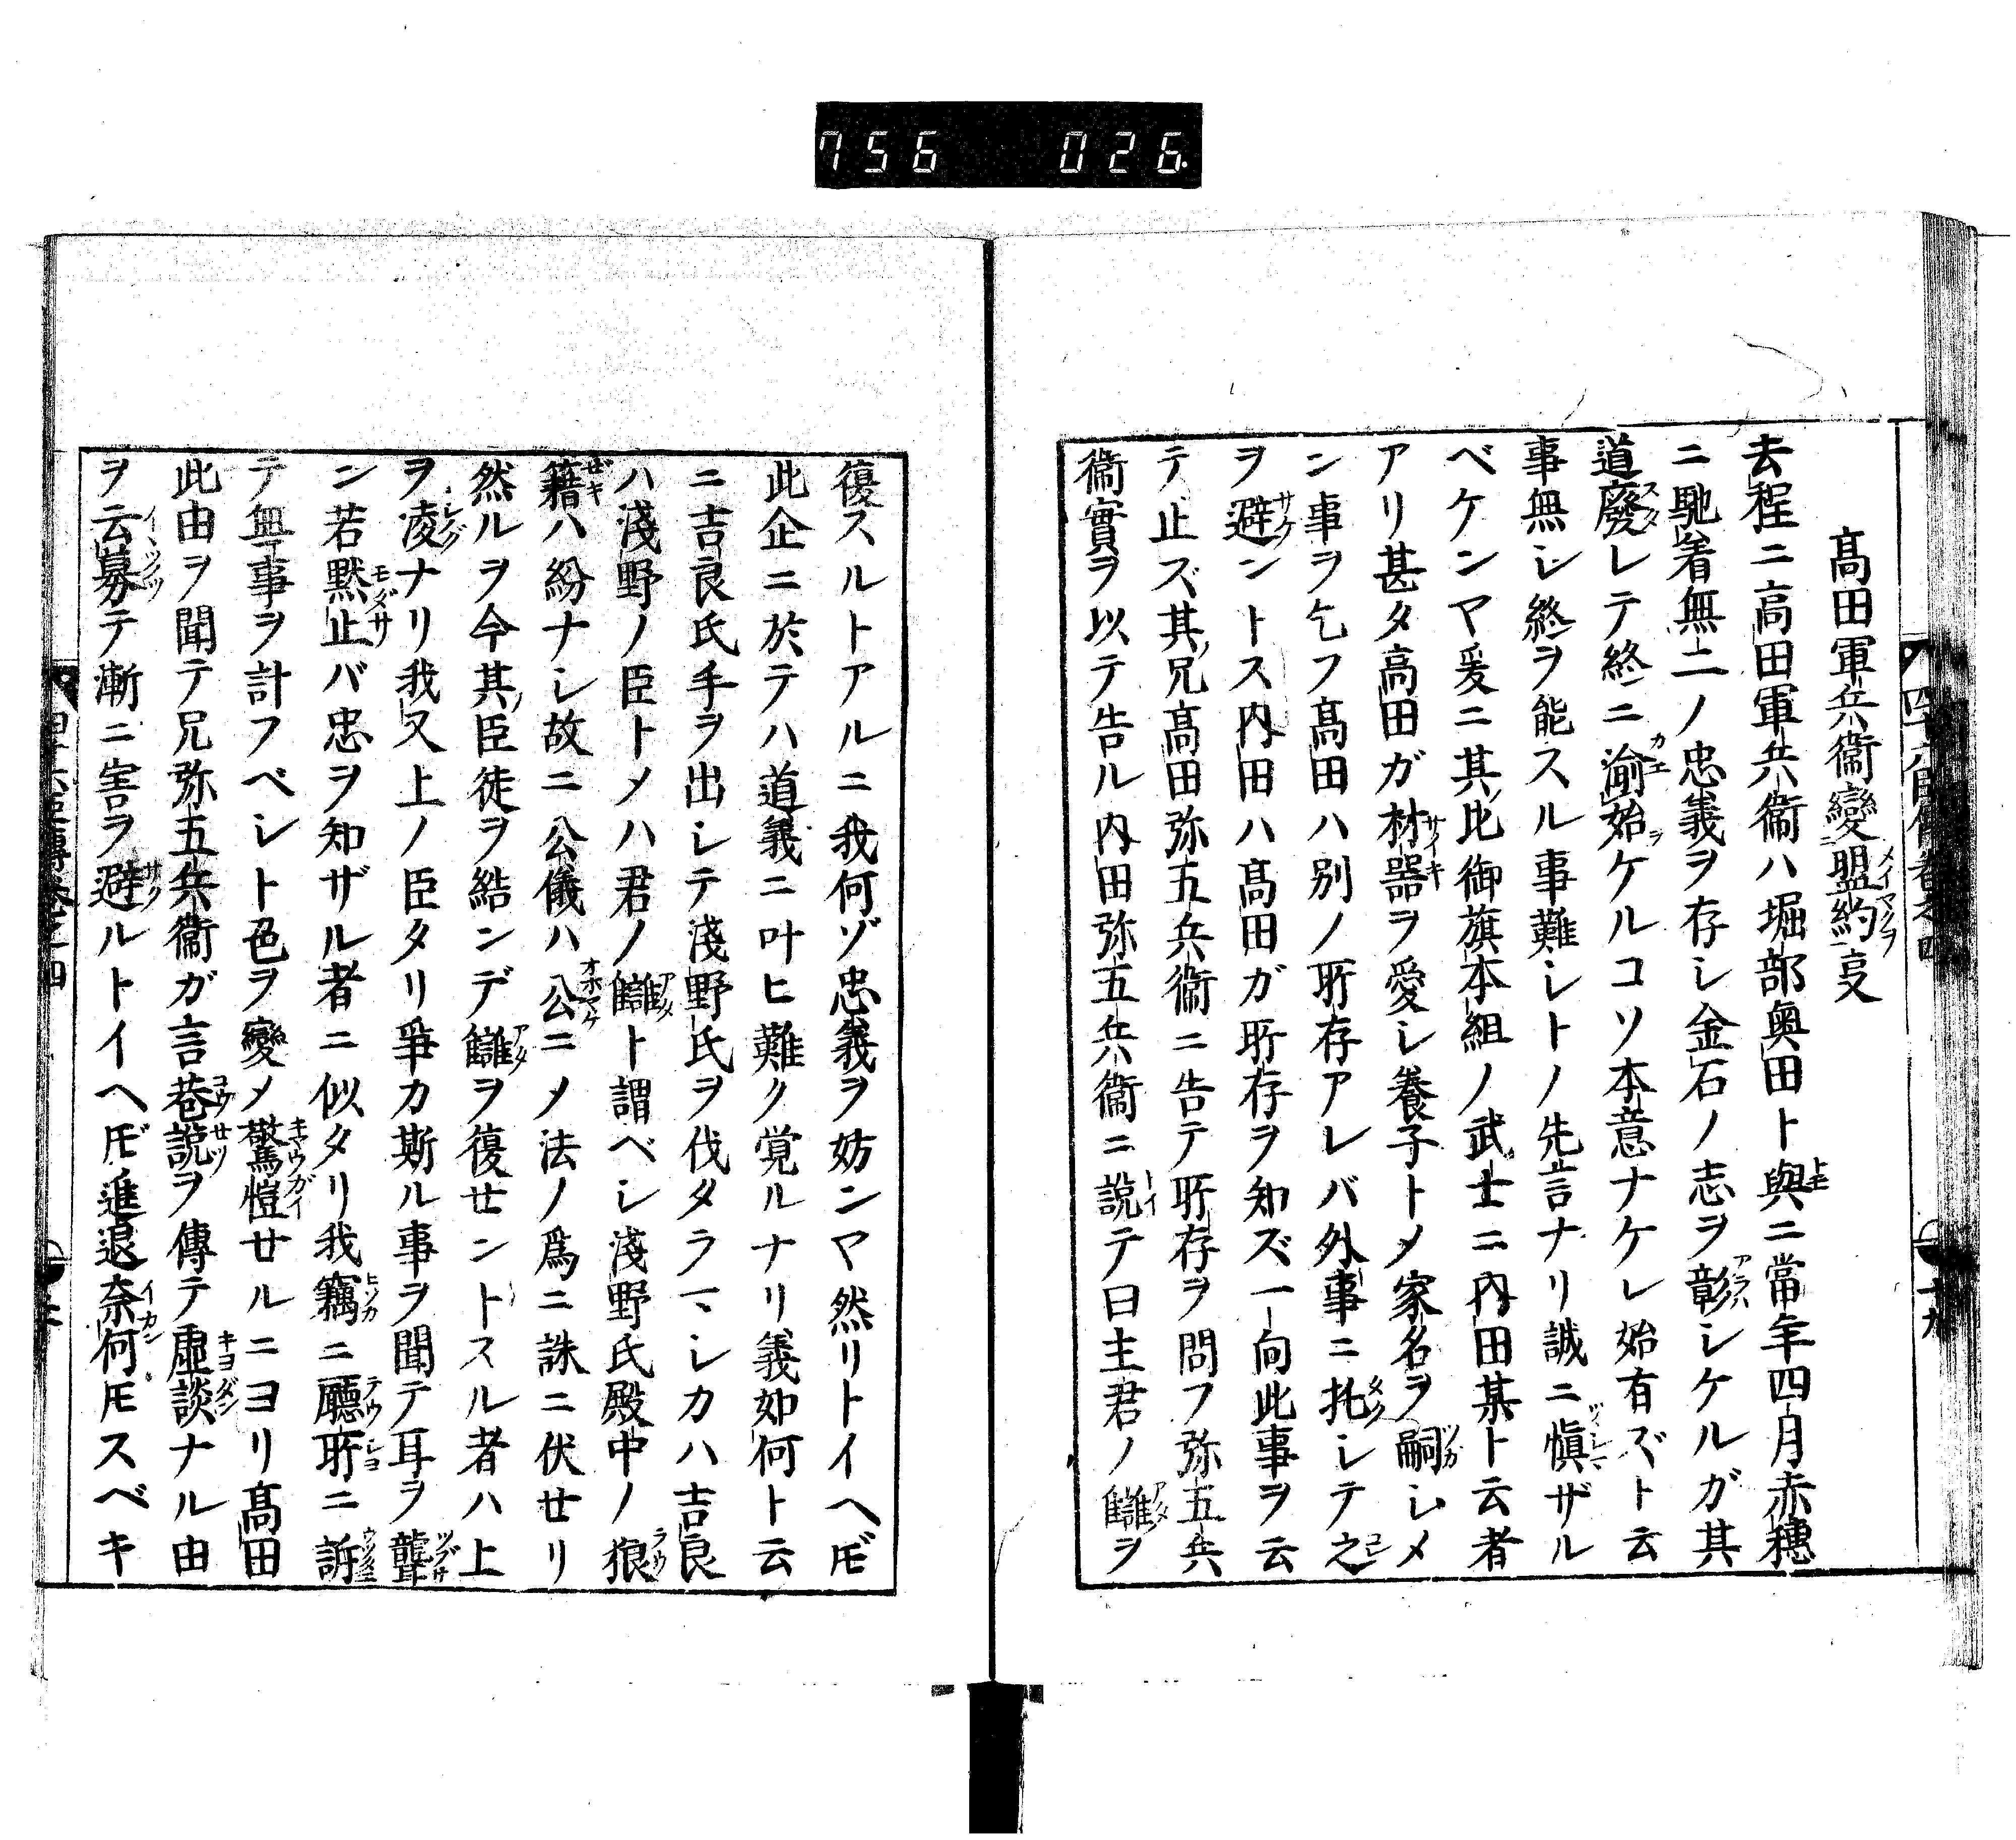 756 026
髙田軍兵衞變盟約叓
去程ニ高田軍兵衞ハ堀部奥田ト與ニ當年四月赤穗
ニ馳着無二ノ忠義ヲ存シ金石ノ志ヲ彰シケルガ其
道廢レテ終ニ渝始ケルコソ本意ナケレ始有ズト云
事無シ終ヲ能スル事難シトノ先言ナリ誠ニ愼ザル
ベケンマ爰ニ其比御旗本組ノ武士ニ内田某ト云者
アリ甚タ高田ガ材器ヲ愛シ養子トメ家名ヲ嗣シメ
ン事ヲ乞フ髙田ハ別ノ所存アレバ外事ニ托シテ之
ヲ避ントス内田ハ髙田ガ所存ヲ知ズ一向此事ヲ云
テ止ズ其兄髙田弥五兵衞ニ告テ所存ヲ問フ弥五兵
衞實ヲ以テ告ル内田弥五兵衞ニ説テ曰主君ノ讎ヲ
復スルトアルニ我何ゾ忠義ヲ妨ンマ然リトイヘ𪜈
此企ニ於テハ道義ニ叶ヒ難ク覚ルナリ義如何ト云
ニ吉良氏手ヲ出シテ淺野氏ヲ伐タラマシカハ吉良
ハ淺野ノ臣トメハ君ノ讎ト謂ベシ淺野氏殿中ノ狼
籍ハ紛ナシ故ニ公儀ハ公ニメ法ノ爲ニ誅ニ伏せリ
然ルヲ今其臣徒ヲ結ンデ讎ヲ復せントスル者ハ上
ヲ凌ナリ我又上ノ臣タリ爭カ斯ル事ヲ聞テ耳ヲ聾
ン若黙止バ忠ヲ知ザル者ニ似タリ我竊ニ廳所ニ訴
テ無事ヲ計フベシト色ヲ變メ驚愷せルニヨリ髙田
此由ヲ聞テ兄弥五兵衞ガ言巷説ヲ傳テ虚談ナル由
ヲ云募テ漸ニ害ヲ避ルトイヘ𪜈進退奈何𪜈スベキ